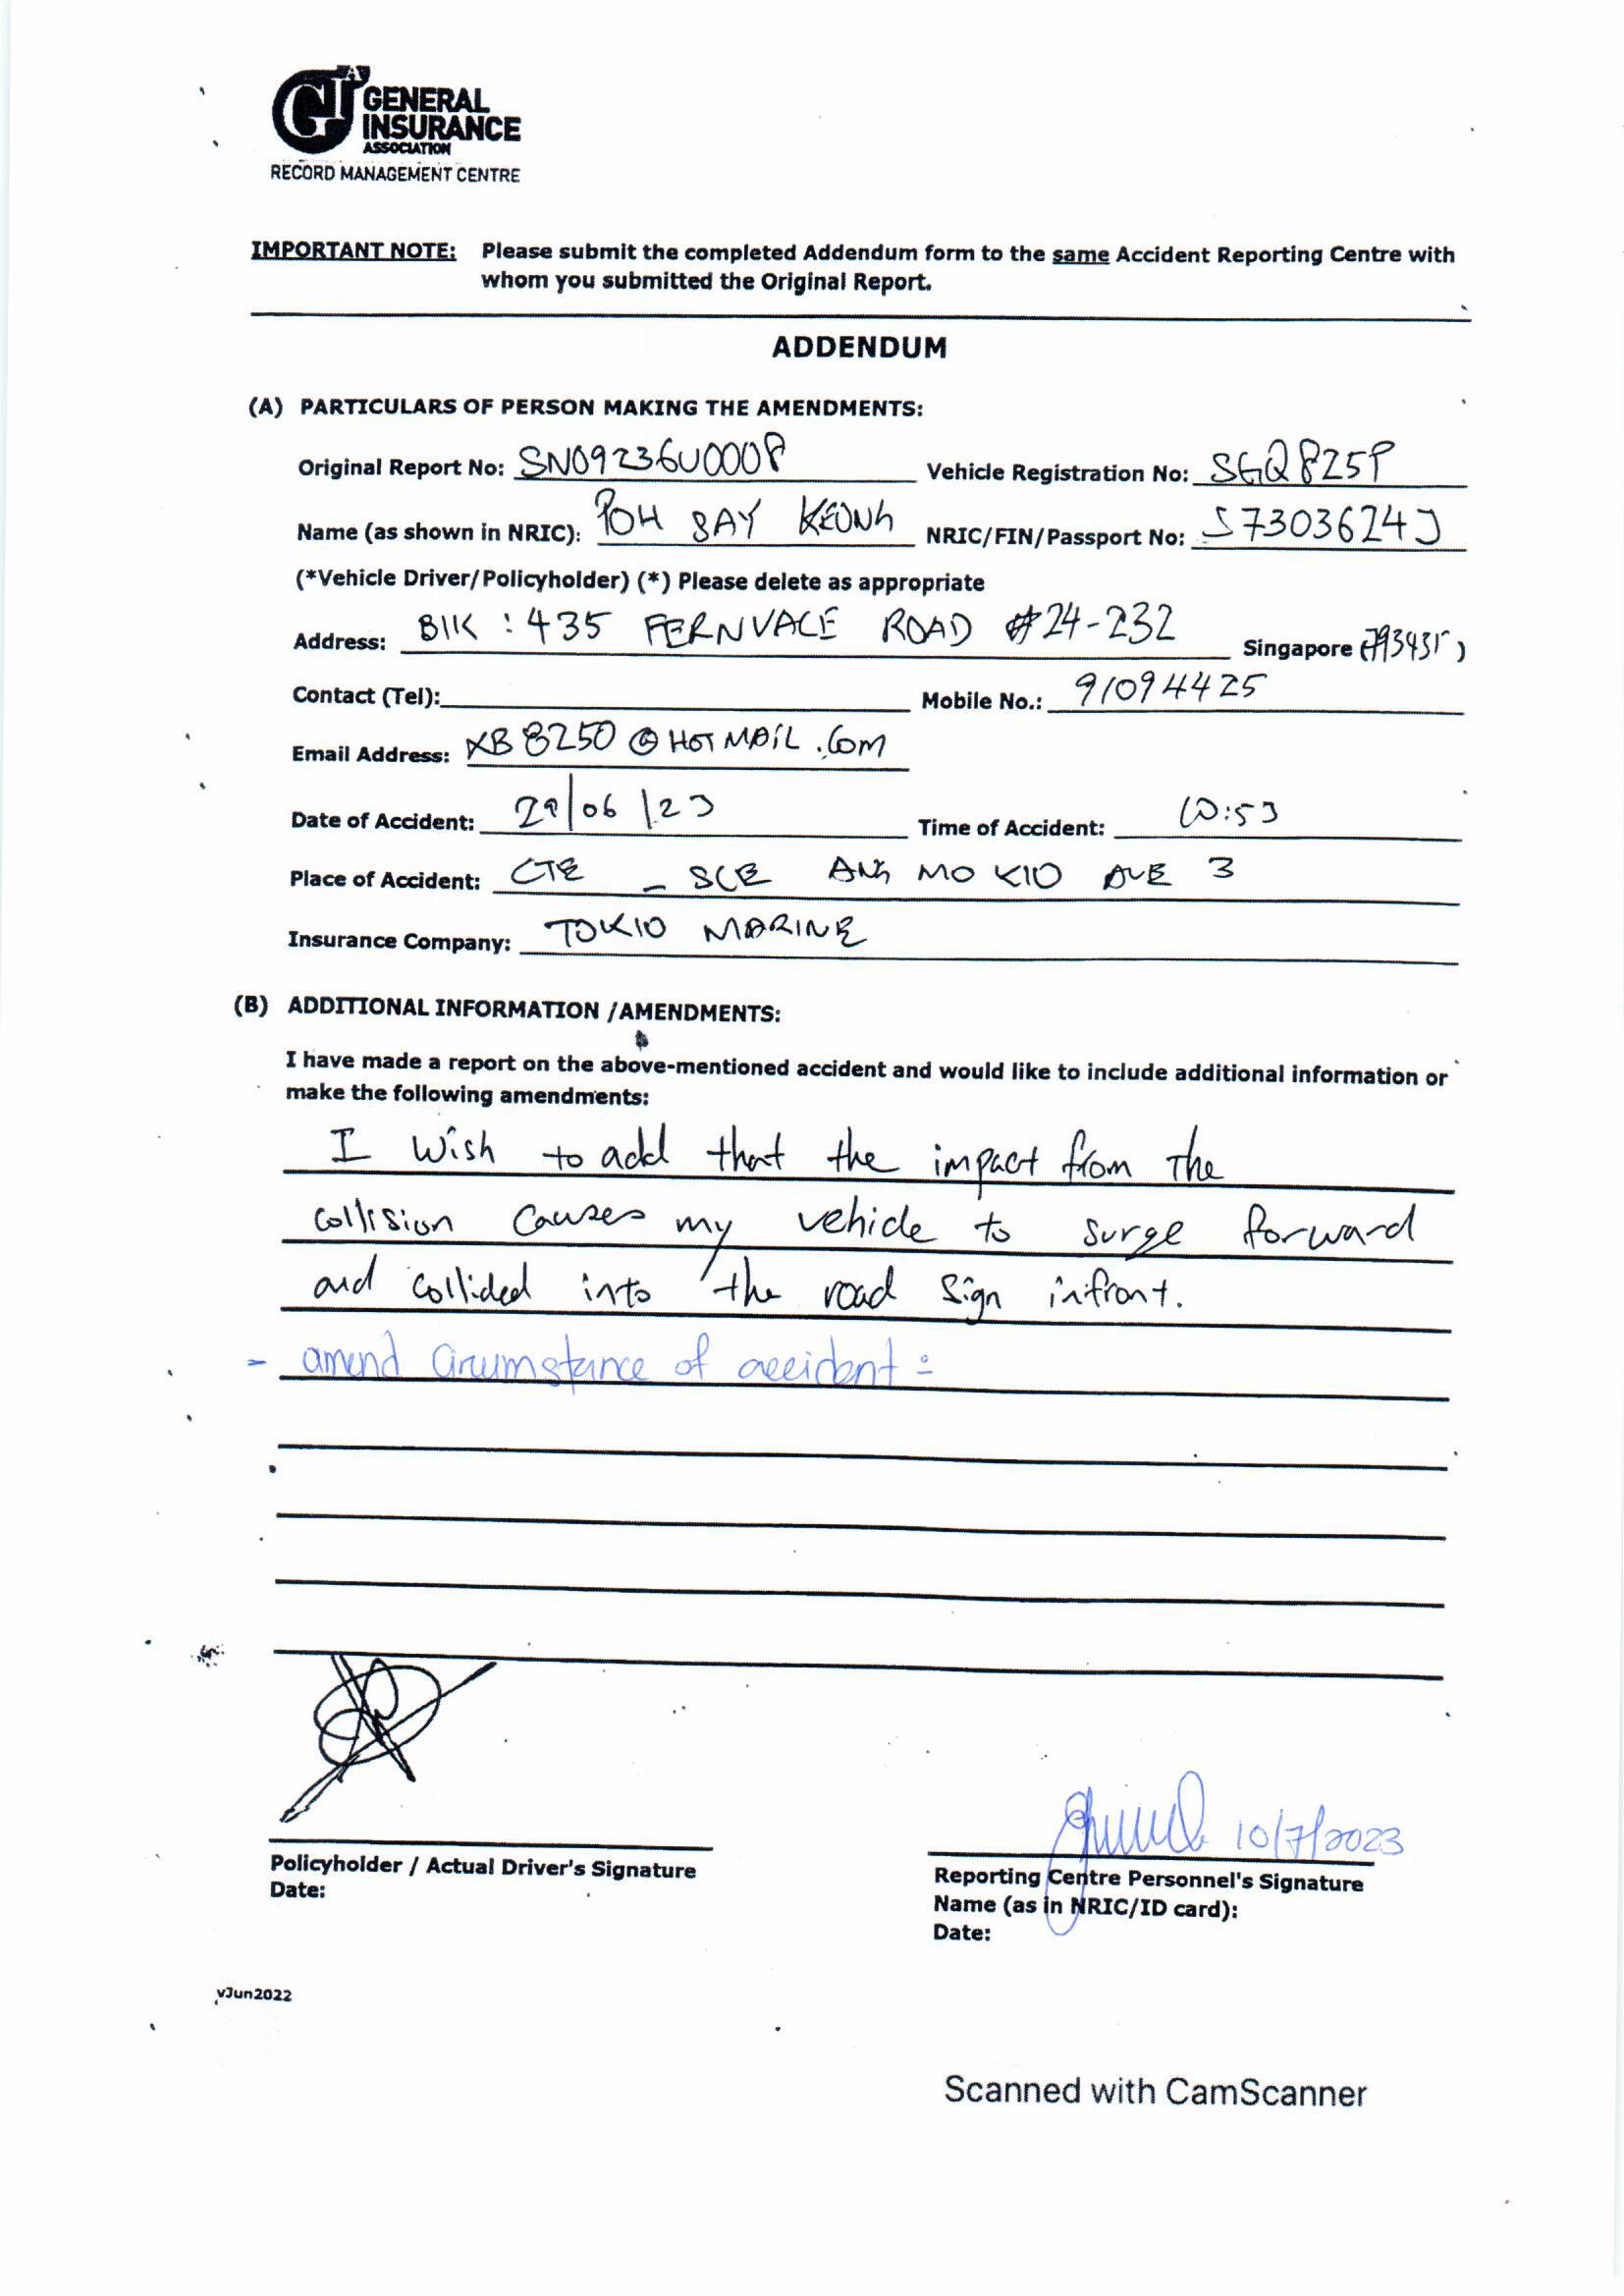 GIA GENERAL
INSURANCE
ASSOCIATION
RECORD MANAGEMENT CENTRE
IMPORTANT NOTE: Please submit the completed Addendum form to the same Accident Reporting Centre with
whom you submitted the Original Report.
ADDENDUM
(A) PARTICULARS OF PERSON MAKING THE AMENDMENTS:
Original Report No: SN09236U0008 Vehicle Registration No: SGQ825P
Name (as shown in NRIC): POH SAY KEONG NRIC/FIN/Passport No: S7303624J
(*Vehicle Driver/Policyholder) (*) Please delete as appropriate
Address: Blk : 435 FERNVALE ROAD #24-232 Singapore (793435)
Contact (Tel): Mobile No.: 91094425
Email Address: XB8250@HOTMAIL.COM
Date of Accident: 29/06/23 Time of Accident: 10:53
Place of Accident: CTE - SLE ANG MO KIO AVE 3
Insurance Company: TOKIO MARINE
(B) ADDITIONAL INFORMATION /AMENDMENTS:
I have made a report on the above-mentioned accident and would like to include additional information or
make the following amendments:
I wish to add that the impact from the
collision causes my vehicle to surge forward
and collided into the road sign infront.
- amend circumstance of accident :
10/7/2023
Policyholder / Actual Driver's Signature
Date:
Reporting Centre Personnel's Signature
Name (as in NRIC/ID card):
Date:
vJun2022
Scanned with CamScanner